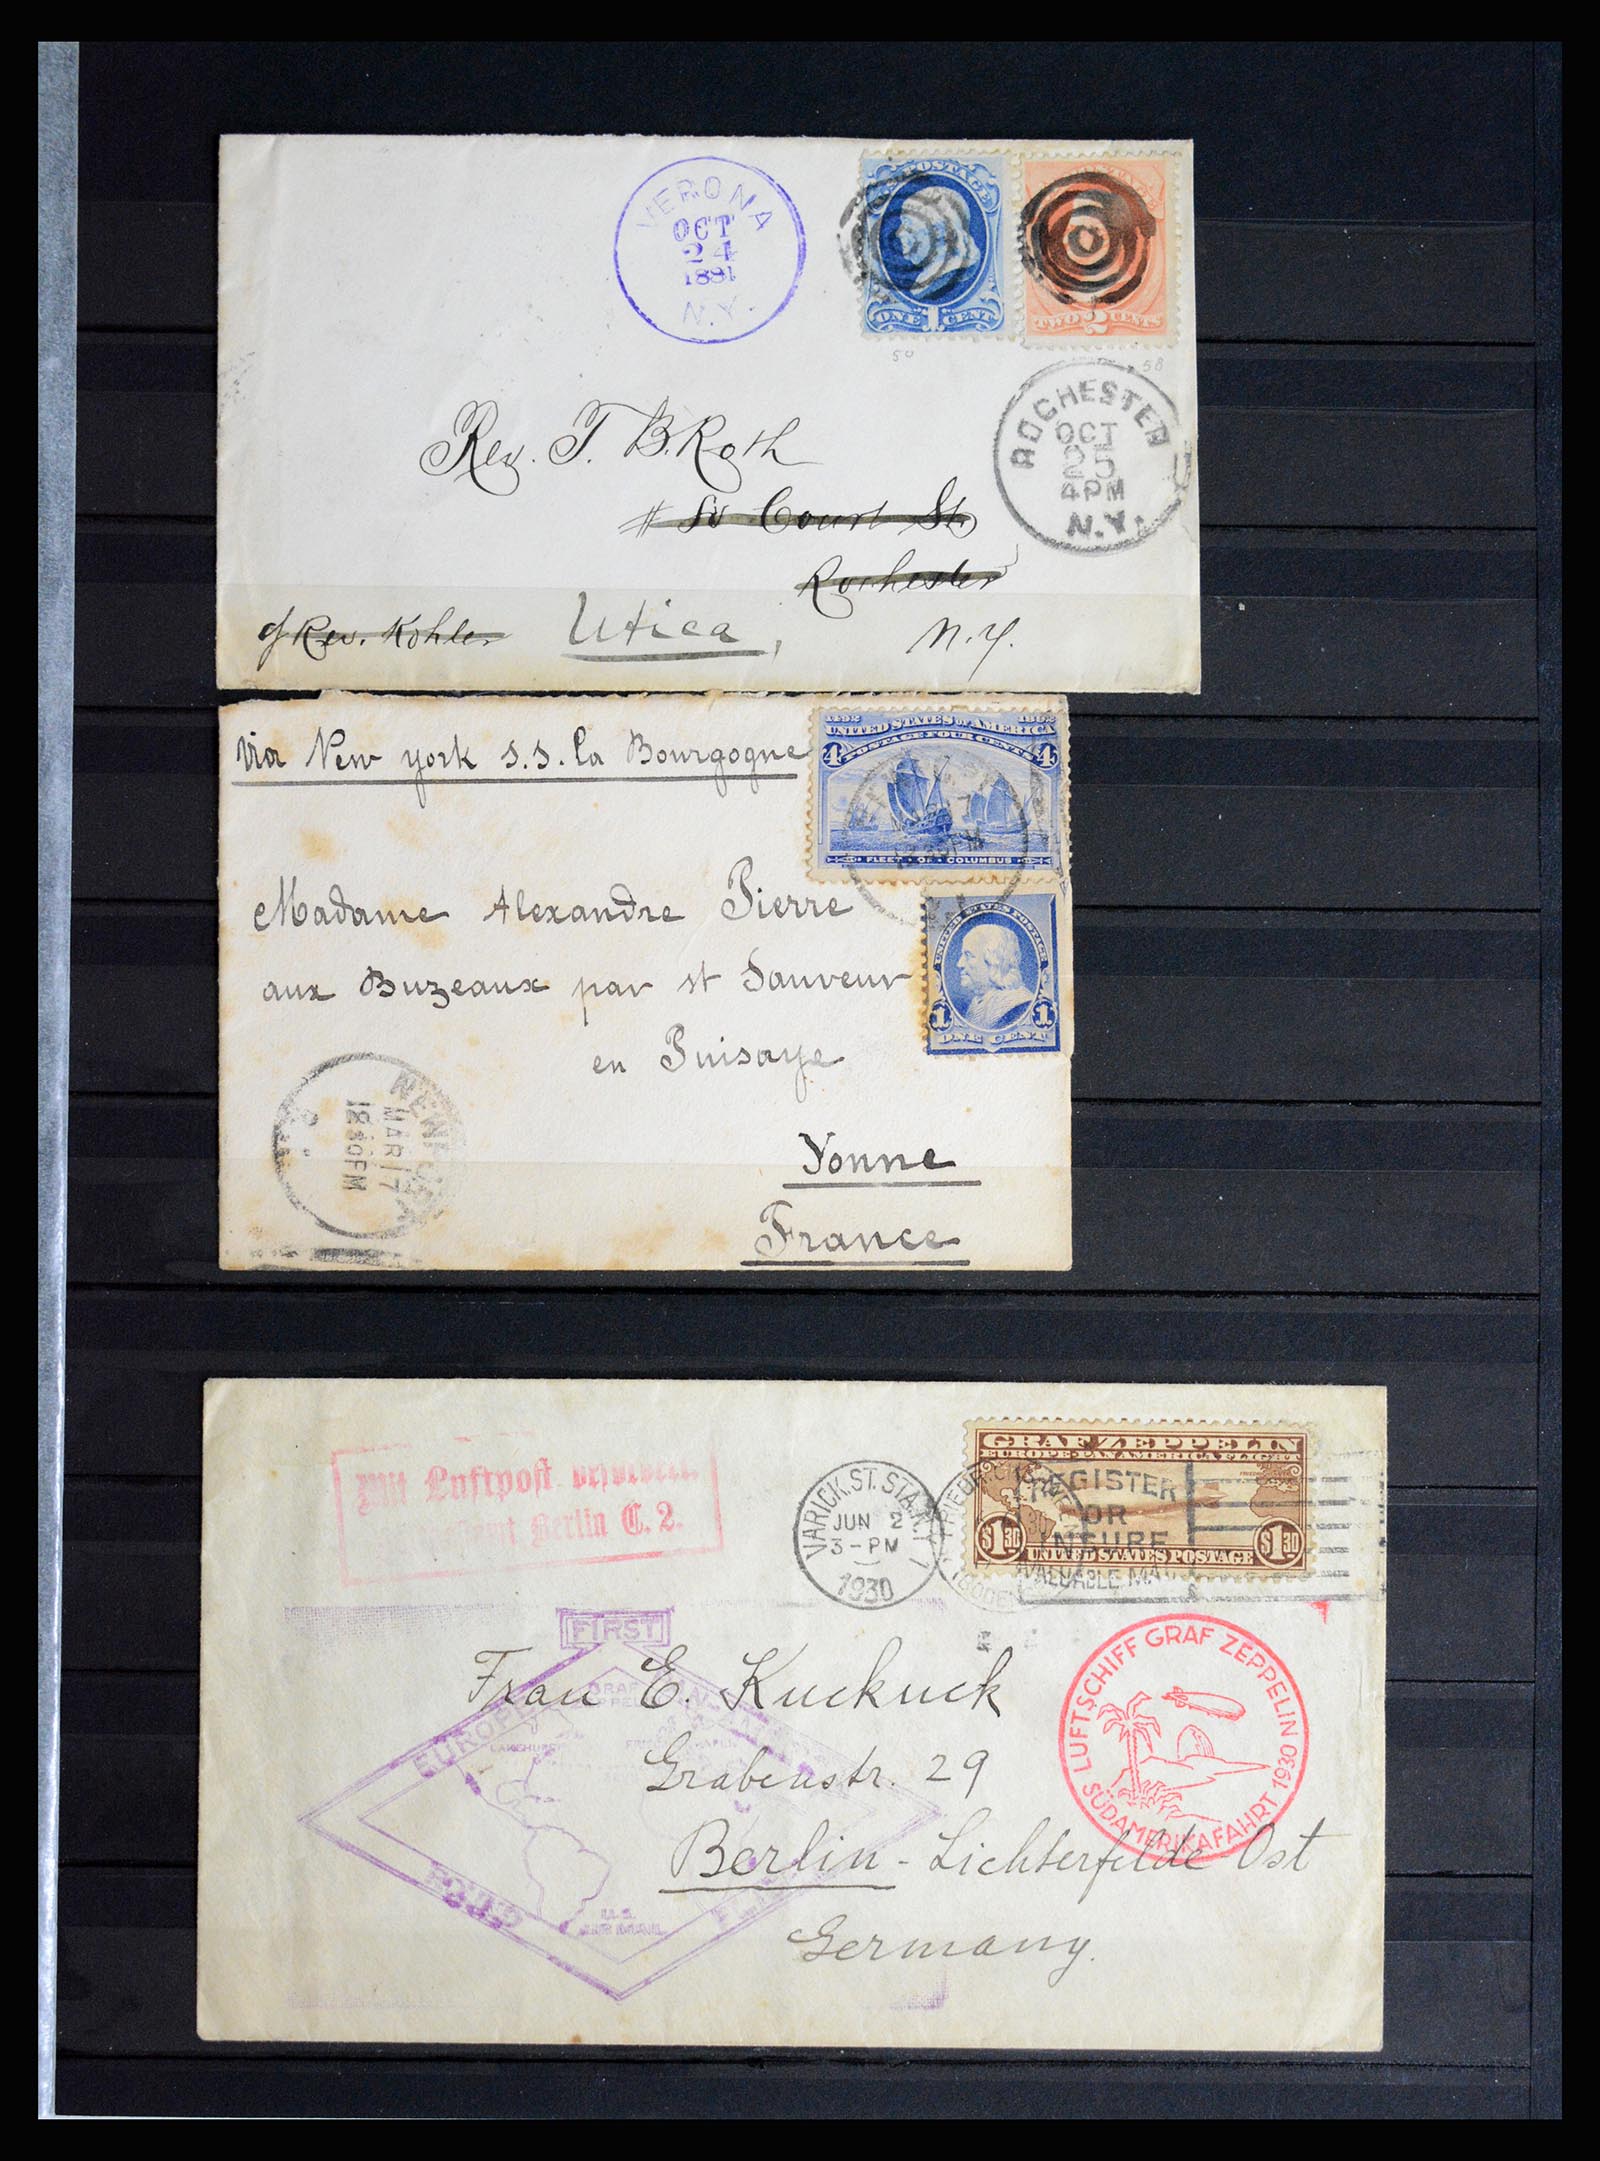 VERONA
OCT
24
1881
N.Y.
U.S. POSTAGE
ONE 1 CENT
TWO 2 CENTS
50
58
ROCHESTER
OCT
25
4 PM
N.Y.
Rev. T. B. Roth
# 50 Court St.
Rochester
c/ Rev. Kohler
Utica,
N.Y.
via New York s.s. la Bourgogne
1492 1892
UNITED STATES OF AMERICA
4 POSTAGE FOUR CENTS 4
FLEET OF COLUMBUS
Madame Alexandre Pierre
aux Buzeaux par st Sauveur
en Puisaye
Yonne
France
UNITED STATES POSTAGE
1 1
ONE CENT
MAR 17
Mit Luftpost befördert
Berlin C. 2.
VARICK ST. STA. N.Y.
JUN 2
3-PM
1930
GRAF ZEPPELIN
EUROPE-PAN AMERICA FLIGHT
$1.30 UNITED STATES POSTAGE $1.30
REGISTER
OR
INSURE
VALUABLE MAIL
FIRST
EUROPE
GRAF
ZEPPELIN
LAKEHURST
ROUND
FLIGHT
U.S.
AIR MAIL
LUFTSCHIFF GRAF ZEPPELIN
SÜDAMERIKAFAHRT 1930
Frau E. Kuckuck
Grabenstr. 29
Berlin-Lichterfelde-Ost
Germany.